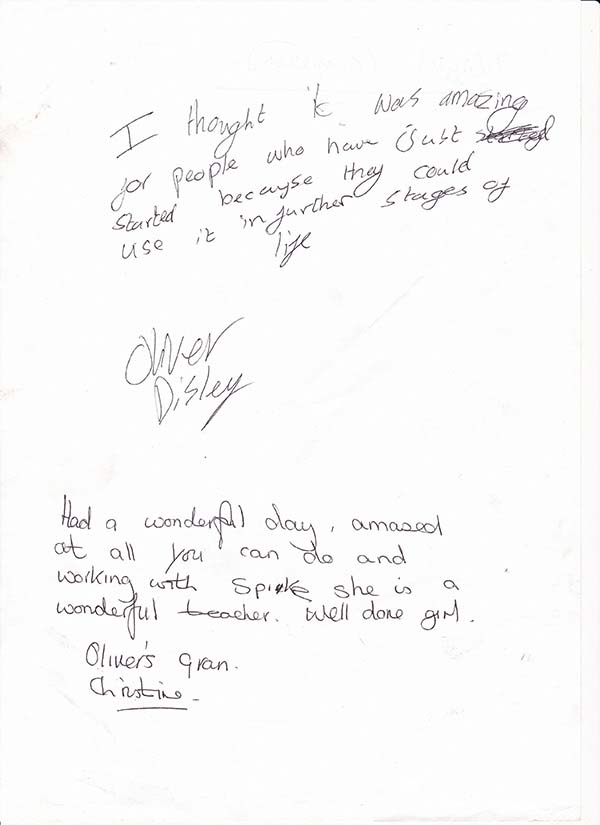 I thought it was amazing
for people who have just
started because they could
use it in further stages of
life
Oliver
Disley
Had a wonderful day, amazed
at all you can do and
working with Spike she is a
wonderful teacher. Well done girl.
Oliver's Gran.
Christine